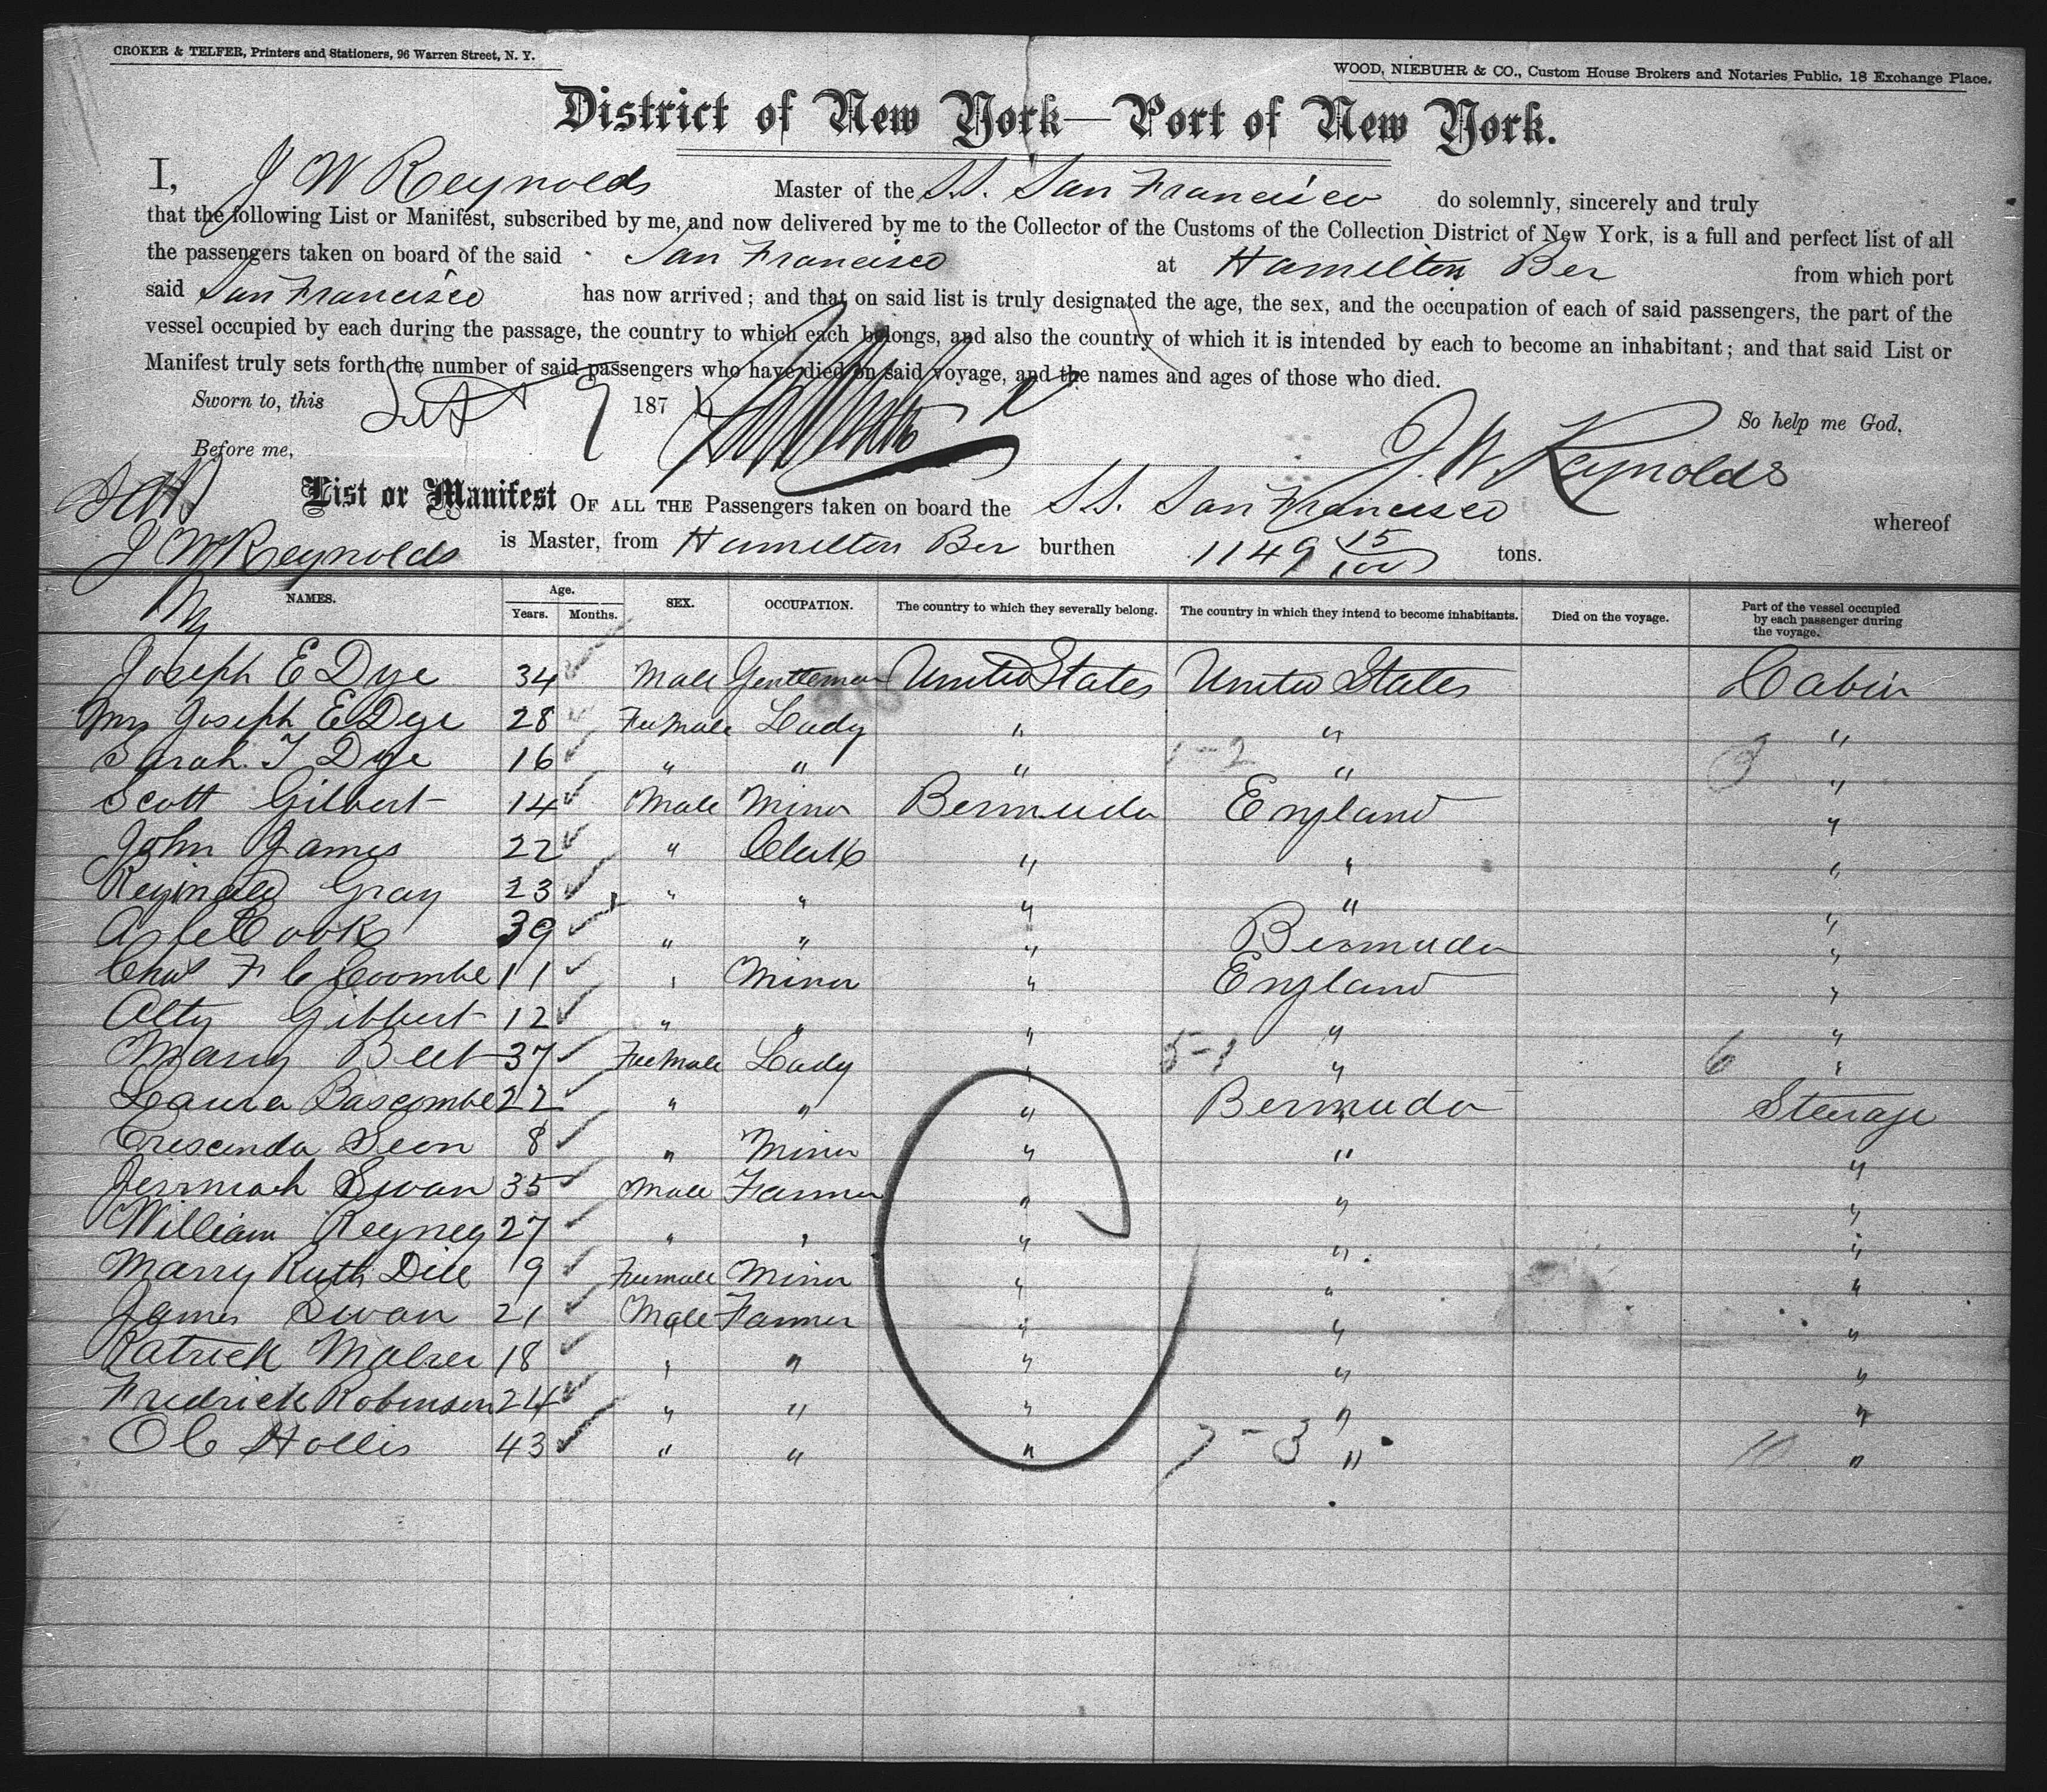 CROKER & TELFER, Printers and Stationers, 96 Warren Street, N. Y.
WOOD, NIEBUHR & CO., Custom House Brokers and Notaries Public, 18 Exchange Place.
District of New York—Port of New York.
I, J W Reynolds Master of the S.S. San Francisco do solemnly, sincerely and truly
that the following List or Manifest, subscribed by me, and now delivered by me to the Collector of the Customs of the Collection District of New York, is a full and perfect list of all
the passengers taken on board of the said San Francisco at Hamilton Ber from which port
said San Francisco has now arrived; and that on said list is truly designated the age, the sex, and the occupation of each of said passengers, the part of the
vessel occupied by each during the passage, the country to which each belongs, and also the country of which it is intended by each to become an inhabitant; and that said List or
Manifest truly sets forth the number of said passengers who have died on said voyage, and the names and ages of those who died.
Sworn to, this Sept 9 187
So help me God,
Before me, J. W. Reynolds
List or Manifest OF ALL THE Passengers taken on board the S.S. San Francisco whereof
J W Reynolds is Master, from Hamilton Ber burthen 1149 15/100 tons.
NAMES. Age. Years. Months. SEX. OCCUPATION. The country to which they severally belong. The country in which they intend to become inhabitants. Died on the voyage. Part of the vessel occupied by each passenger during the voyage.
Joseph E Dye 34 Male Gentleman United States United States Cabin
Mrs Joseph E Dye 28 Female Lady " " "
Sarah T Dye 16 " " " 1-2 " 3 "
Scott Gilbert 14 Male Minor Bermuda England "
John James 22 " Clerk " " "
Reginald Gray 23 " " " " "
Cook 39 " " " Bermuda "
Chas F C Coombe 11 " Minor " England "
Alty Gibbert 12 " " " " "
Mary 37 Female Lady " 5-1 " 6 "
Laura Bascombe 22 " " " Bermuda Steerage
Crescenda Seon 8 " Minor " " "
Jerimiah Swan 35 Male Farmer " " "
William 27 " " " " "
Marry Ruth Dill 9 Female Minor " " "
James Swan 21 Male Farmer " " "
Patrick 18 " " " " "
Fredrick Robinson 24 " " " " "
O C Hollis 43 " " " 7-3 " 10 "